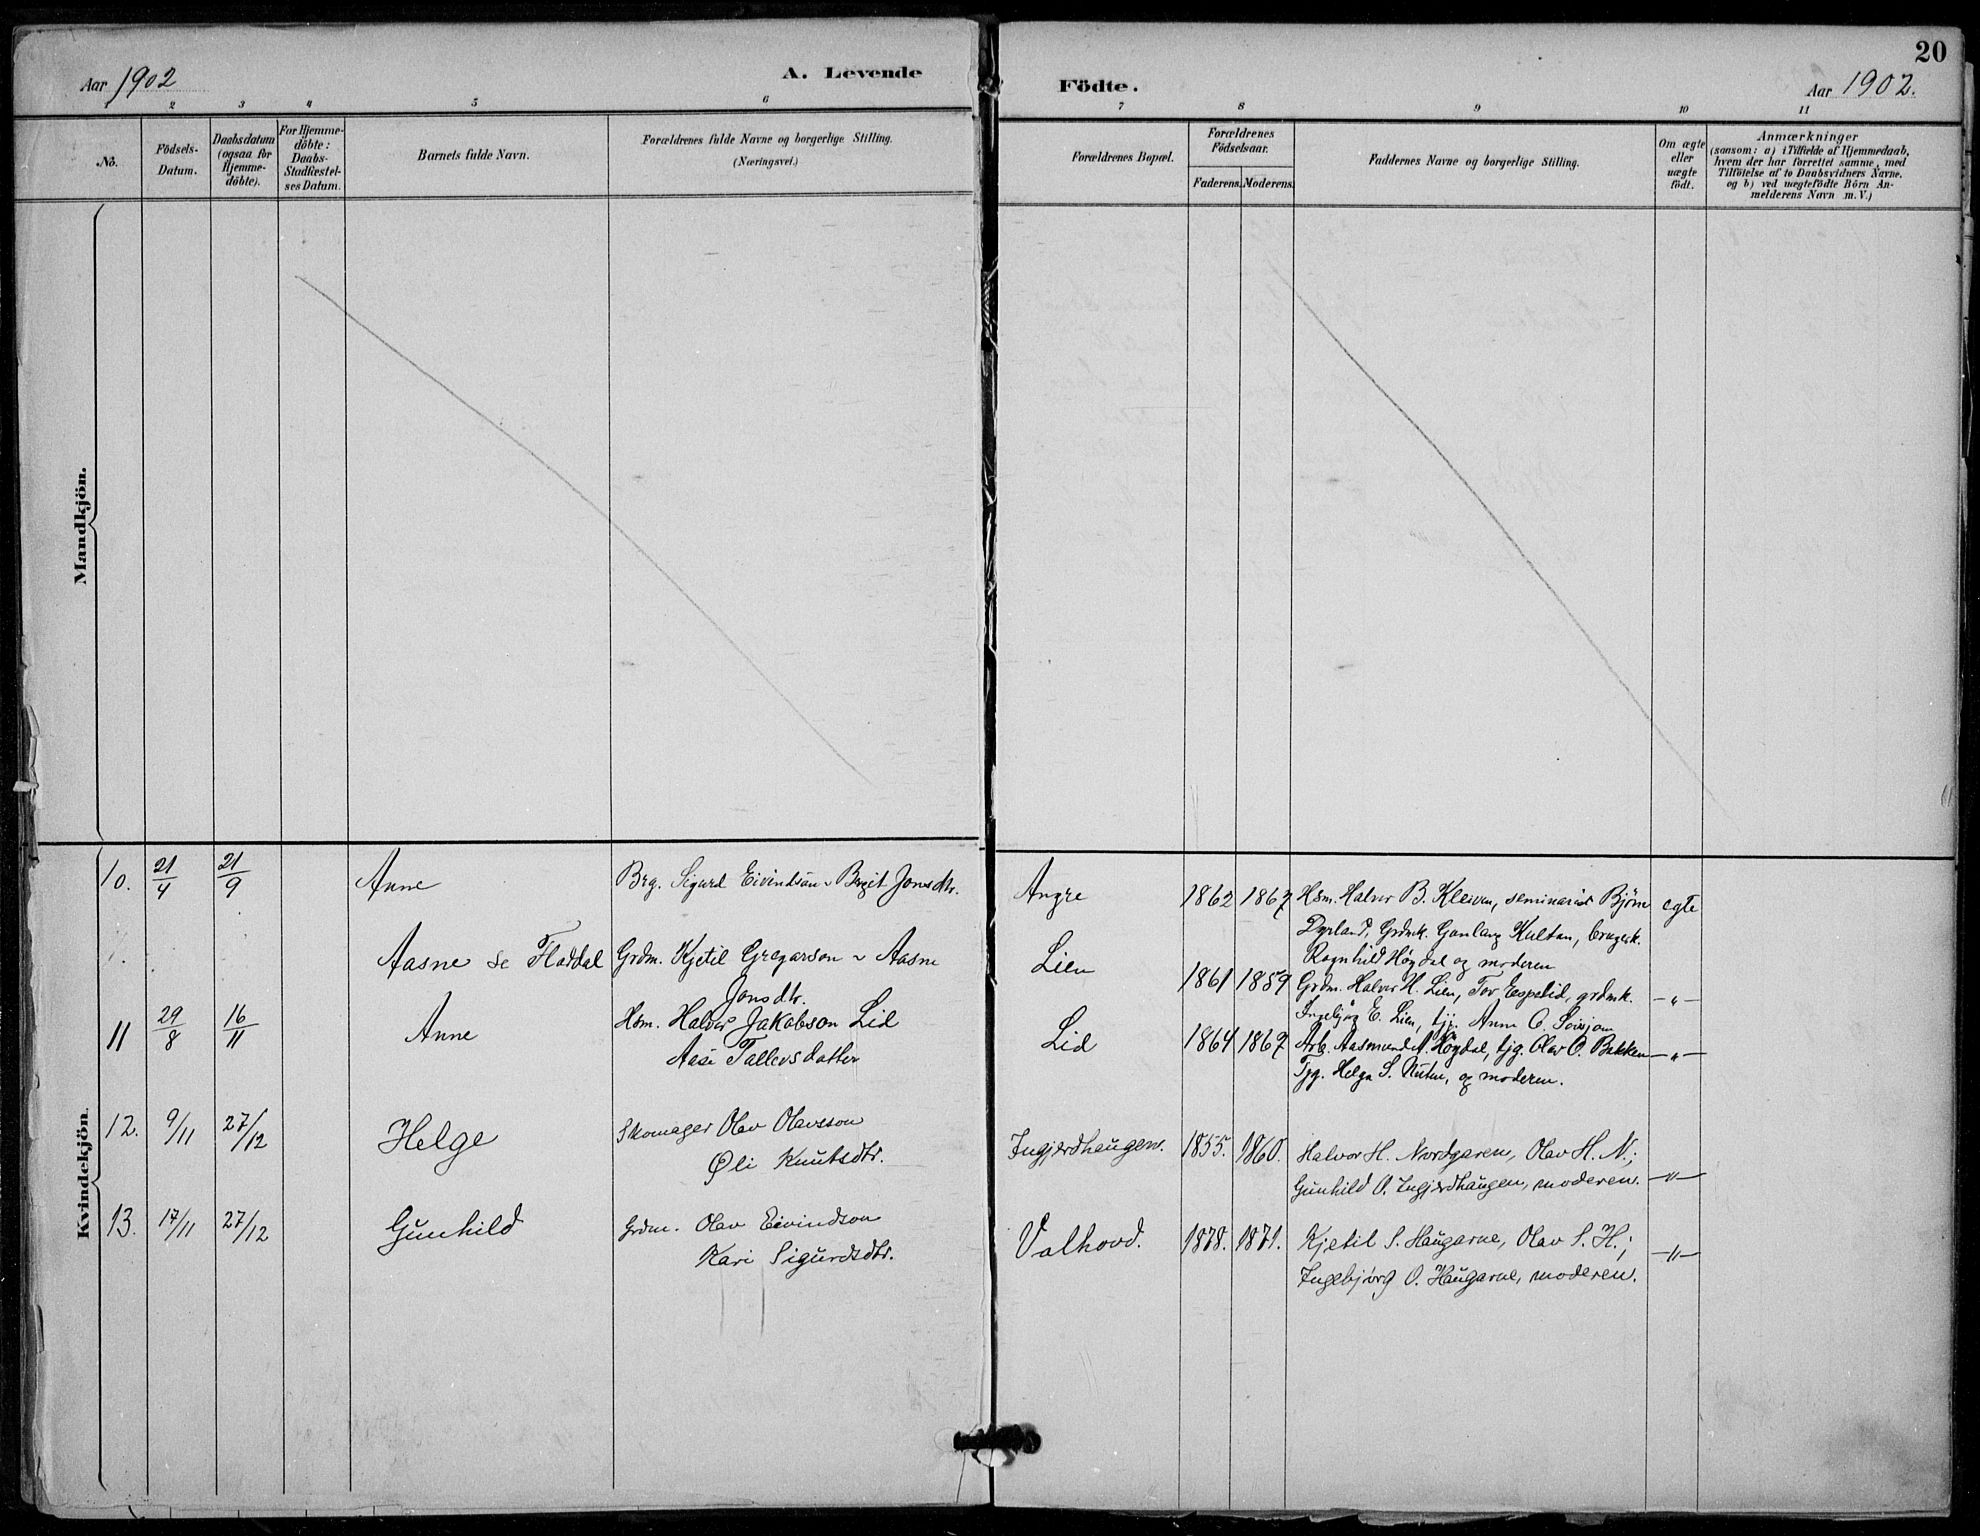 20
Aar 1902
A. Levende
Födte.
Aar 1902.
1 2 3 4 5 6 7 8 9 10 11
No.
Födsels-
Datum.
Daabsdatum
(ogsaa for
Hjemme-
döbte).
For Hjemme-
döbte:
Daabs-
Stadfæstel-
ses Datum.
Barnets fulde Navn.
Forældrenes fulde Navne og borgerlige Stilling.
(Næringsvei.)
Forældrenes Bopæl.
Forældrenes
Födselsaar.
Faderens. Moderens.
Faddernes Navne og borgerlige Stilling.
Om ægte
eller
uægte
født.
Anmærkninger
(saasom: a) i Tilfælde af Hjemmedaab,
hvem der har forrettet samme, med
Tilføielse af to Daabsvidners Navne.
og b) ved uægtefødte Börn An-
melderens Navn m.V.)
Mandkjön.
Kvindekjön.
10. 21/4 21/9 Anne Brg. Sigurd Eivindson Birgit Jonsdtr. Angre 1862 1867 Hsm. Halvor B. Kleiven, seminarist Bjørn egte
Dyrland, Grdmk. Gonlaug Kultan, brugerk.
Ragnhild Høgdal og moderen
Aasne se Flatdal Grdm. Kjetil Gregarson Aasne
Jonsdtr.
Lien 1861 1859 Grdm. Halvor H. Lien, Tor Espelid, grdmk. -"-
Ingebjørg E. Lien, tjg. Anne O.
11 29/8 16/11 Anne Hsm. Halvor Jakobson Lid
Aase Tallevsdatter
Lid 1864 1867 Arb. Aasmund A. Høgdal, tjg. Olav O. Bakken -"-
Tjg. Helga S. Nuten, og moderen.
12. 9/11 27/12 Helge Skomager Olav Olavsson
Øli Knutsdtr.
Ingjerdhaugen. 1855. 1860. Halvor H. Nordgaren, Olav H. N.;
Gunhild O. Ingjerdhaugen, moderen. -"-
13. 17/11 27/12 Gunhild Grdm. Olav Eivindson
Kari Sigurdsdtr.
Valhovd. 1878. 1871. Kjetil S. Haugarne, Olav S. H.;
Ingebjørg O. Haugarne, moderen. -"-